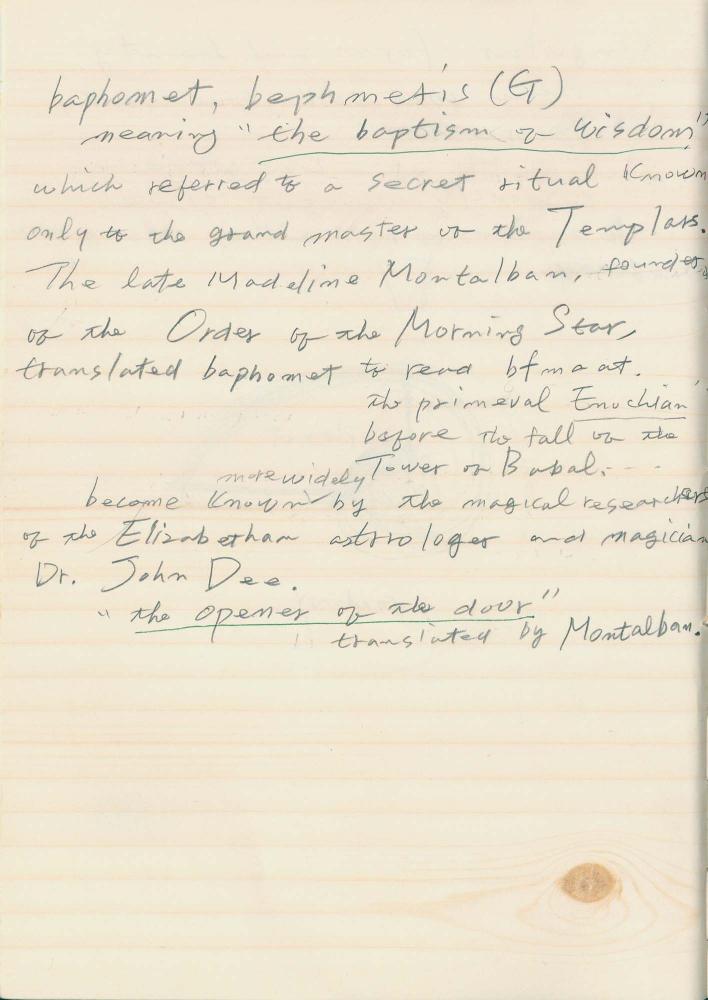 baphomet, bephmetis (G)
meaning "the baptism of wisdom"
which referred to a secret ritual known
only to the grand master of the Templars.
The late Madeline Montalban, founder
of the Order of the Morning Star,
translated baphomet to read bfmaat.
the primeval Enochian
before the fall of the
Tower of Babal. - - -
more widely
become known by the magical researchers
of the Elizabethan astrologer and magician
Dr. John Dee.
"the opener of the door"
translated by Montalban.